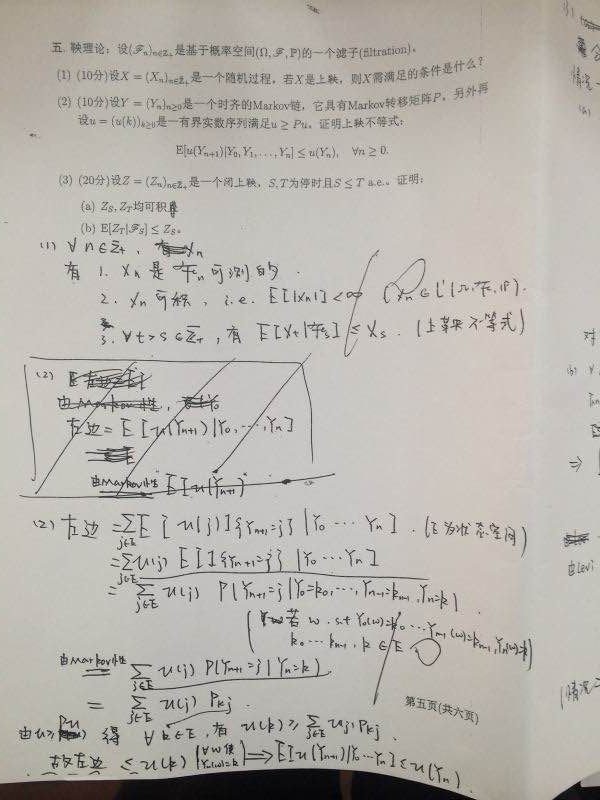 五. 鞅理论: 设(ℱₙ)n∈ℤ₊是基于概率空间(Ω, ℱ, P)的一个滤子(filtration)。
(1) (10分)设X = (Xₙ)n∈ℤ₊是一个随机过程, 若X是上鞅, 则X需满足的条件是什么?
(2) (10分)设Y = (Yₙ)n≥0是一个时齐的Markov链, 它具有Markov转移矩阵P。另外再
设u = (u(k))k≥0是一有界实数序列满足u ≥ Pu。证明上鞅不等式:
E[u(Yₙ₊₁)|Y₀, Y₁, . . . , Yₙ] ≤ u(Yₙ), ∀n ≥ 0.
(3) (20分)设Z = (Zₙ)n∈ℤ₊是一个闭上鞅, S, T为停时且S ≤ T a.e.。证明:
(a) Z_S, Z_T均可积
(b) E[Z_T|ℱ_S] ≤ Z_S。
(1) ∀ n∈ℤ₊,
有 1. Xₙ 是 ℱₙ 可测的.
2. Xₙ 可积, i.e. E[|Xₙ|] < ∞ (Xₙ ∈ L¹(Ω,ℱ,P)).
3. ∀ t>s ∈ ℤ₊, 有 E[X_t|ℱ_s] ≤ X_s. (上鞅不等式)
(2)
由Markov性,
左边 = E[u(Yₙ₊₁)|Y₀,⋯,Yₙ]
由Markov性 E[u(Yₙ₊₁)
(2) 左边 = Σ_{j∈E} E[u(j)1{Yₙ₊₁=j} | Y₀⋯Yₙ]. (E为状态空间)
= Σ_{j∈E} u(j) E[1{Yₙ₊₁=j} | Y₀⋯Yₙ]
= Σ_{j∈E} u(j) P(Yₙ₊₁=j | Y₀=k₀,⋯,Yₙ₋₁=kₙ₋₁, Yₙ=k)
(若 w s.t Y₀(w)=k₀⋯Yₙ₋₁(w)=kₙ₋₁, Yₙ(w)=k)
k₀⋯kₙ₋₁, k ∈ E
由Markov性 Σ_{j∈E} u(j) P(Yₙ₊₁=j | Yₙ=k)
= Σ_{j∈E} u(j) P_{kj}.
第五页(共六页)
由u≥Pu 得 ∀ k∈E, 有 u(k) ≥ Σ_{j∈E} u(j) P_{kj}.
故左边 ≤ u(k) (∀w使Yₙ(w)=k) ⟹ E[u(Yₙ₊₁)|Y₀⋯Yₙ] ≤ u(Yₙ).
对
⇒
由Levi
(情况二